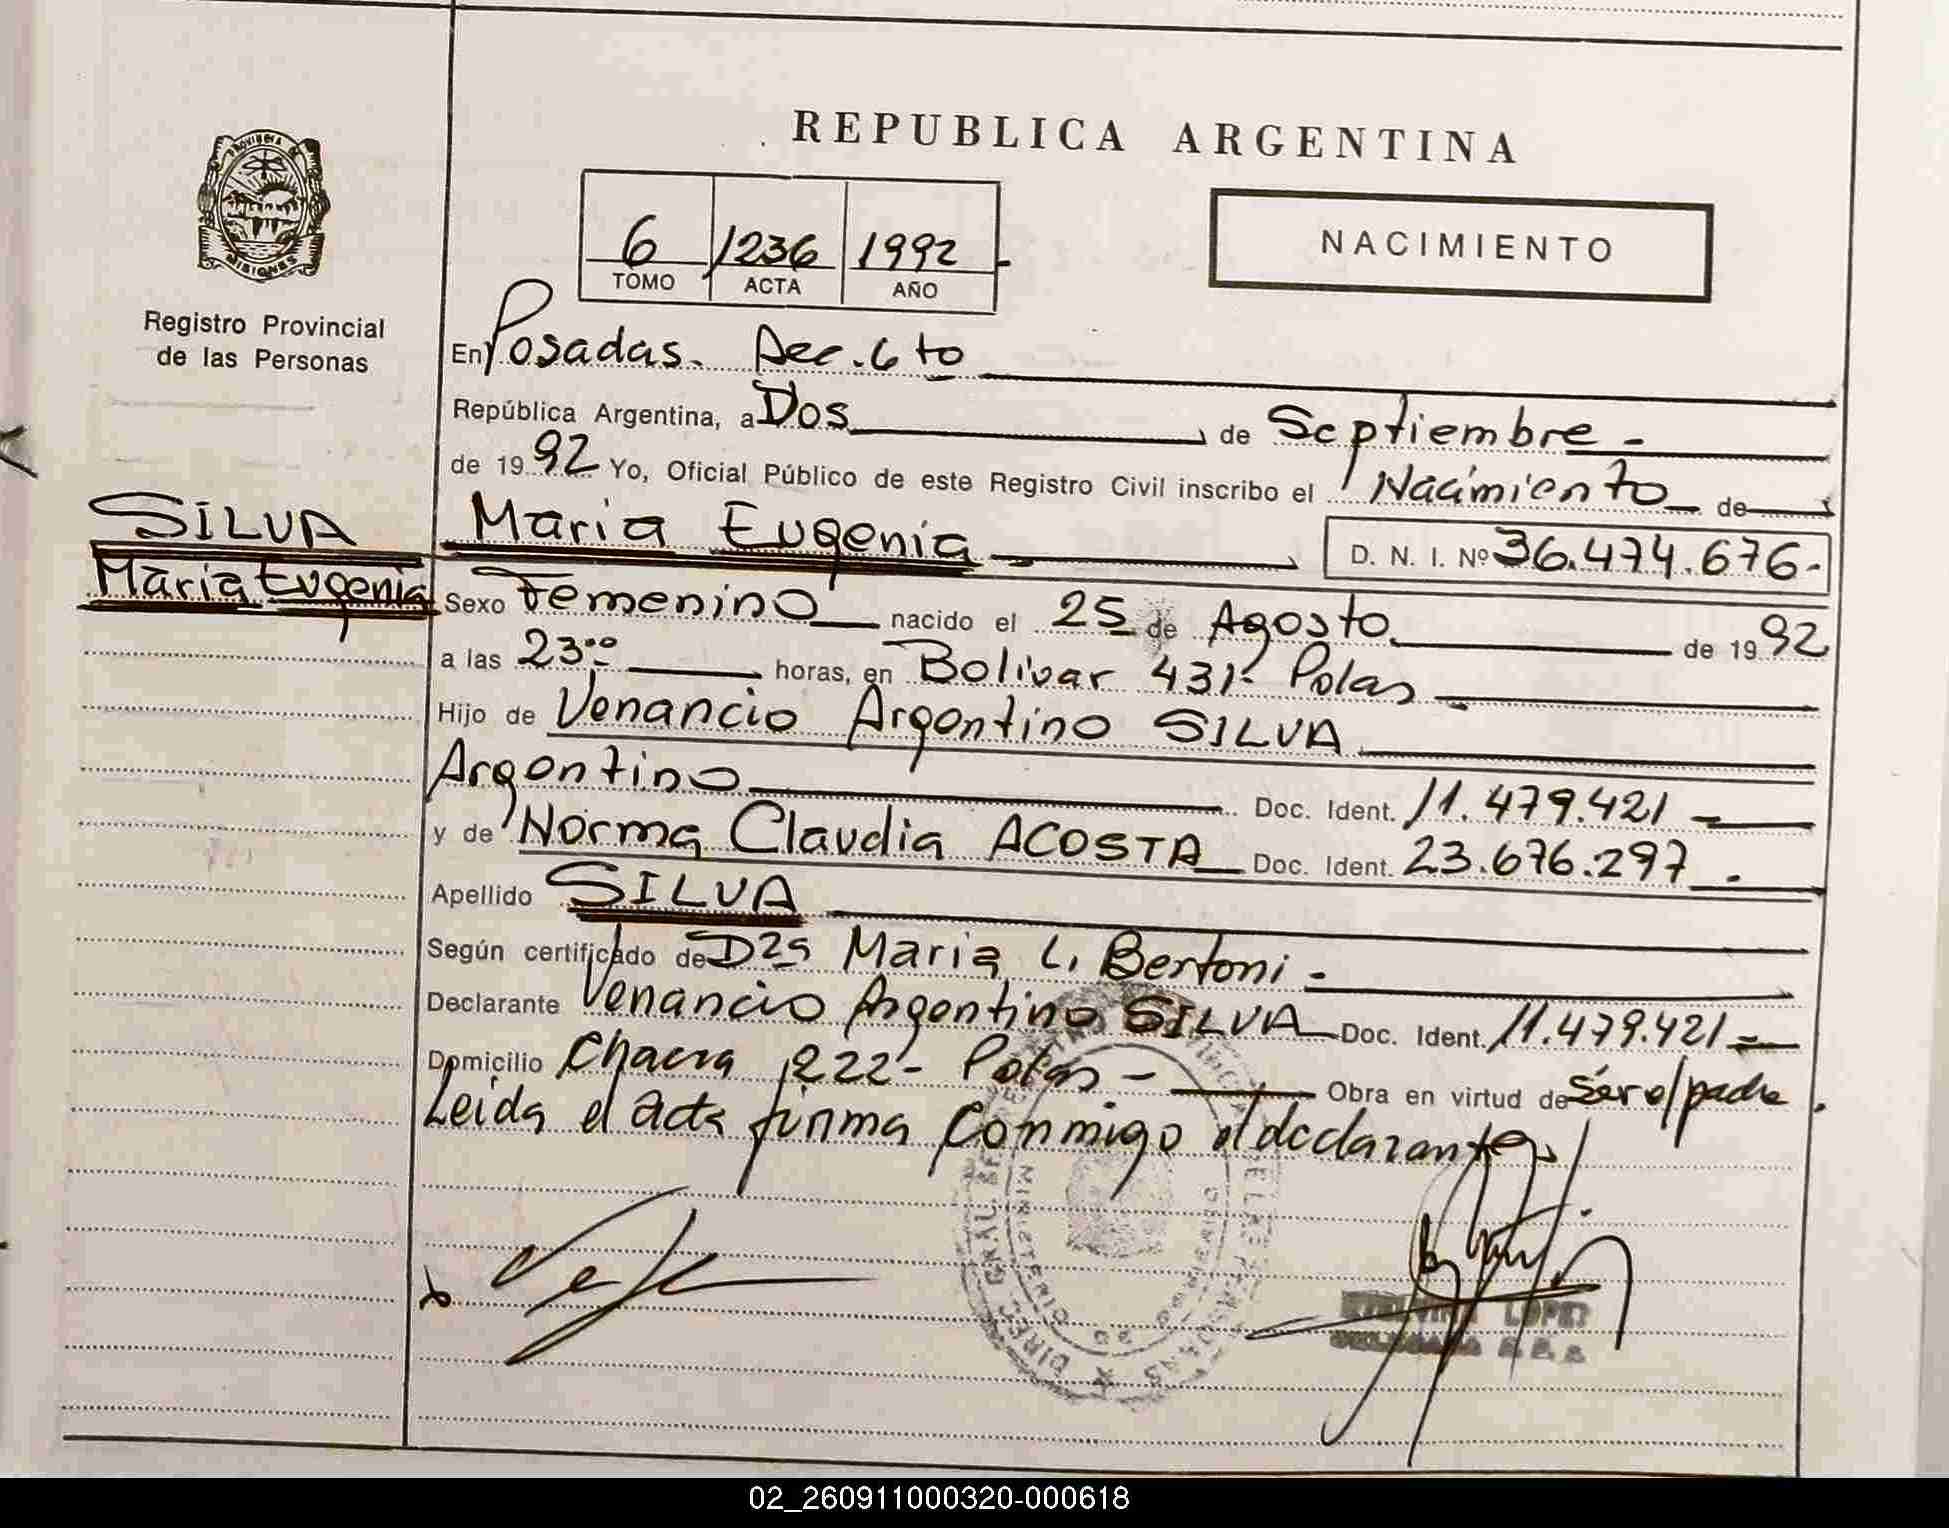 REPUBLICA ARGENTINA
PROVINCIA DE
MISIONES
Registro Provincial
de las Personas
6 1236 1992
TOMO ACTA AÑO
NACIMIENTO
En Posadas. Sec. 6 to
República Argentina, a Dos de Septiembre -
de 1992 Yo, Oficial Público de este Registro Civil inscribo el Nacimiento de
SILVA
Maria Eugenia
Maria Eugenia D. N. I. Nº 36.474.676.-
Sexo Femenino nacido el 25 de Agosto de 1992
a las 23:00 horas, en Bolivar 431- Pdas
Hijo de Venancio Argentino SILVA
Argentino Doc. Ident. 11.479.421 -
y de Norma Claudia ACOSTA Doc. Ident. 23.676.297 -
Apellido SILVA
Según certificado de Dra Maria L. Bertoni -
Declarante Venancio Argentino SILVA Doc. Ident. 11.479.421 -
Domicilio Chacra 222- Pdas - Obra en virtud de Ser e/padre.
Leida el acta firma Conmigo el declarante
LOPEZ
02_260911000320-000618